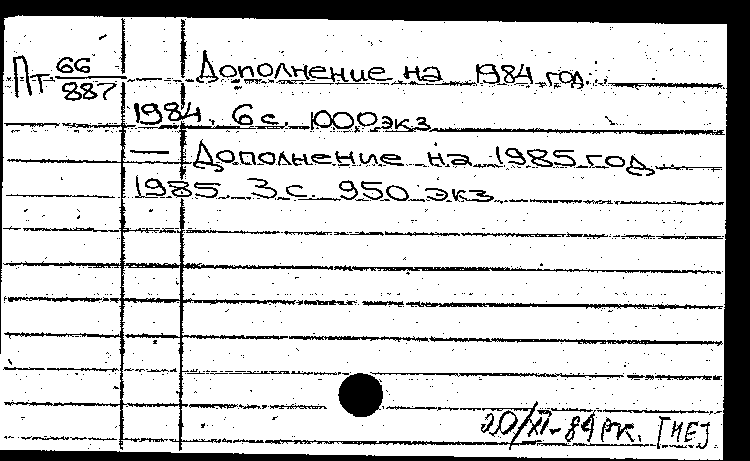 Пт 66/887 Дополнение на 1984 год.
1984. 6 с. 1000 экз
— Дополнение на 1985 год
1985 3 с. 950 экз
20/XI-84 РК. [ИЕ]